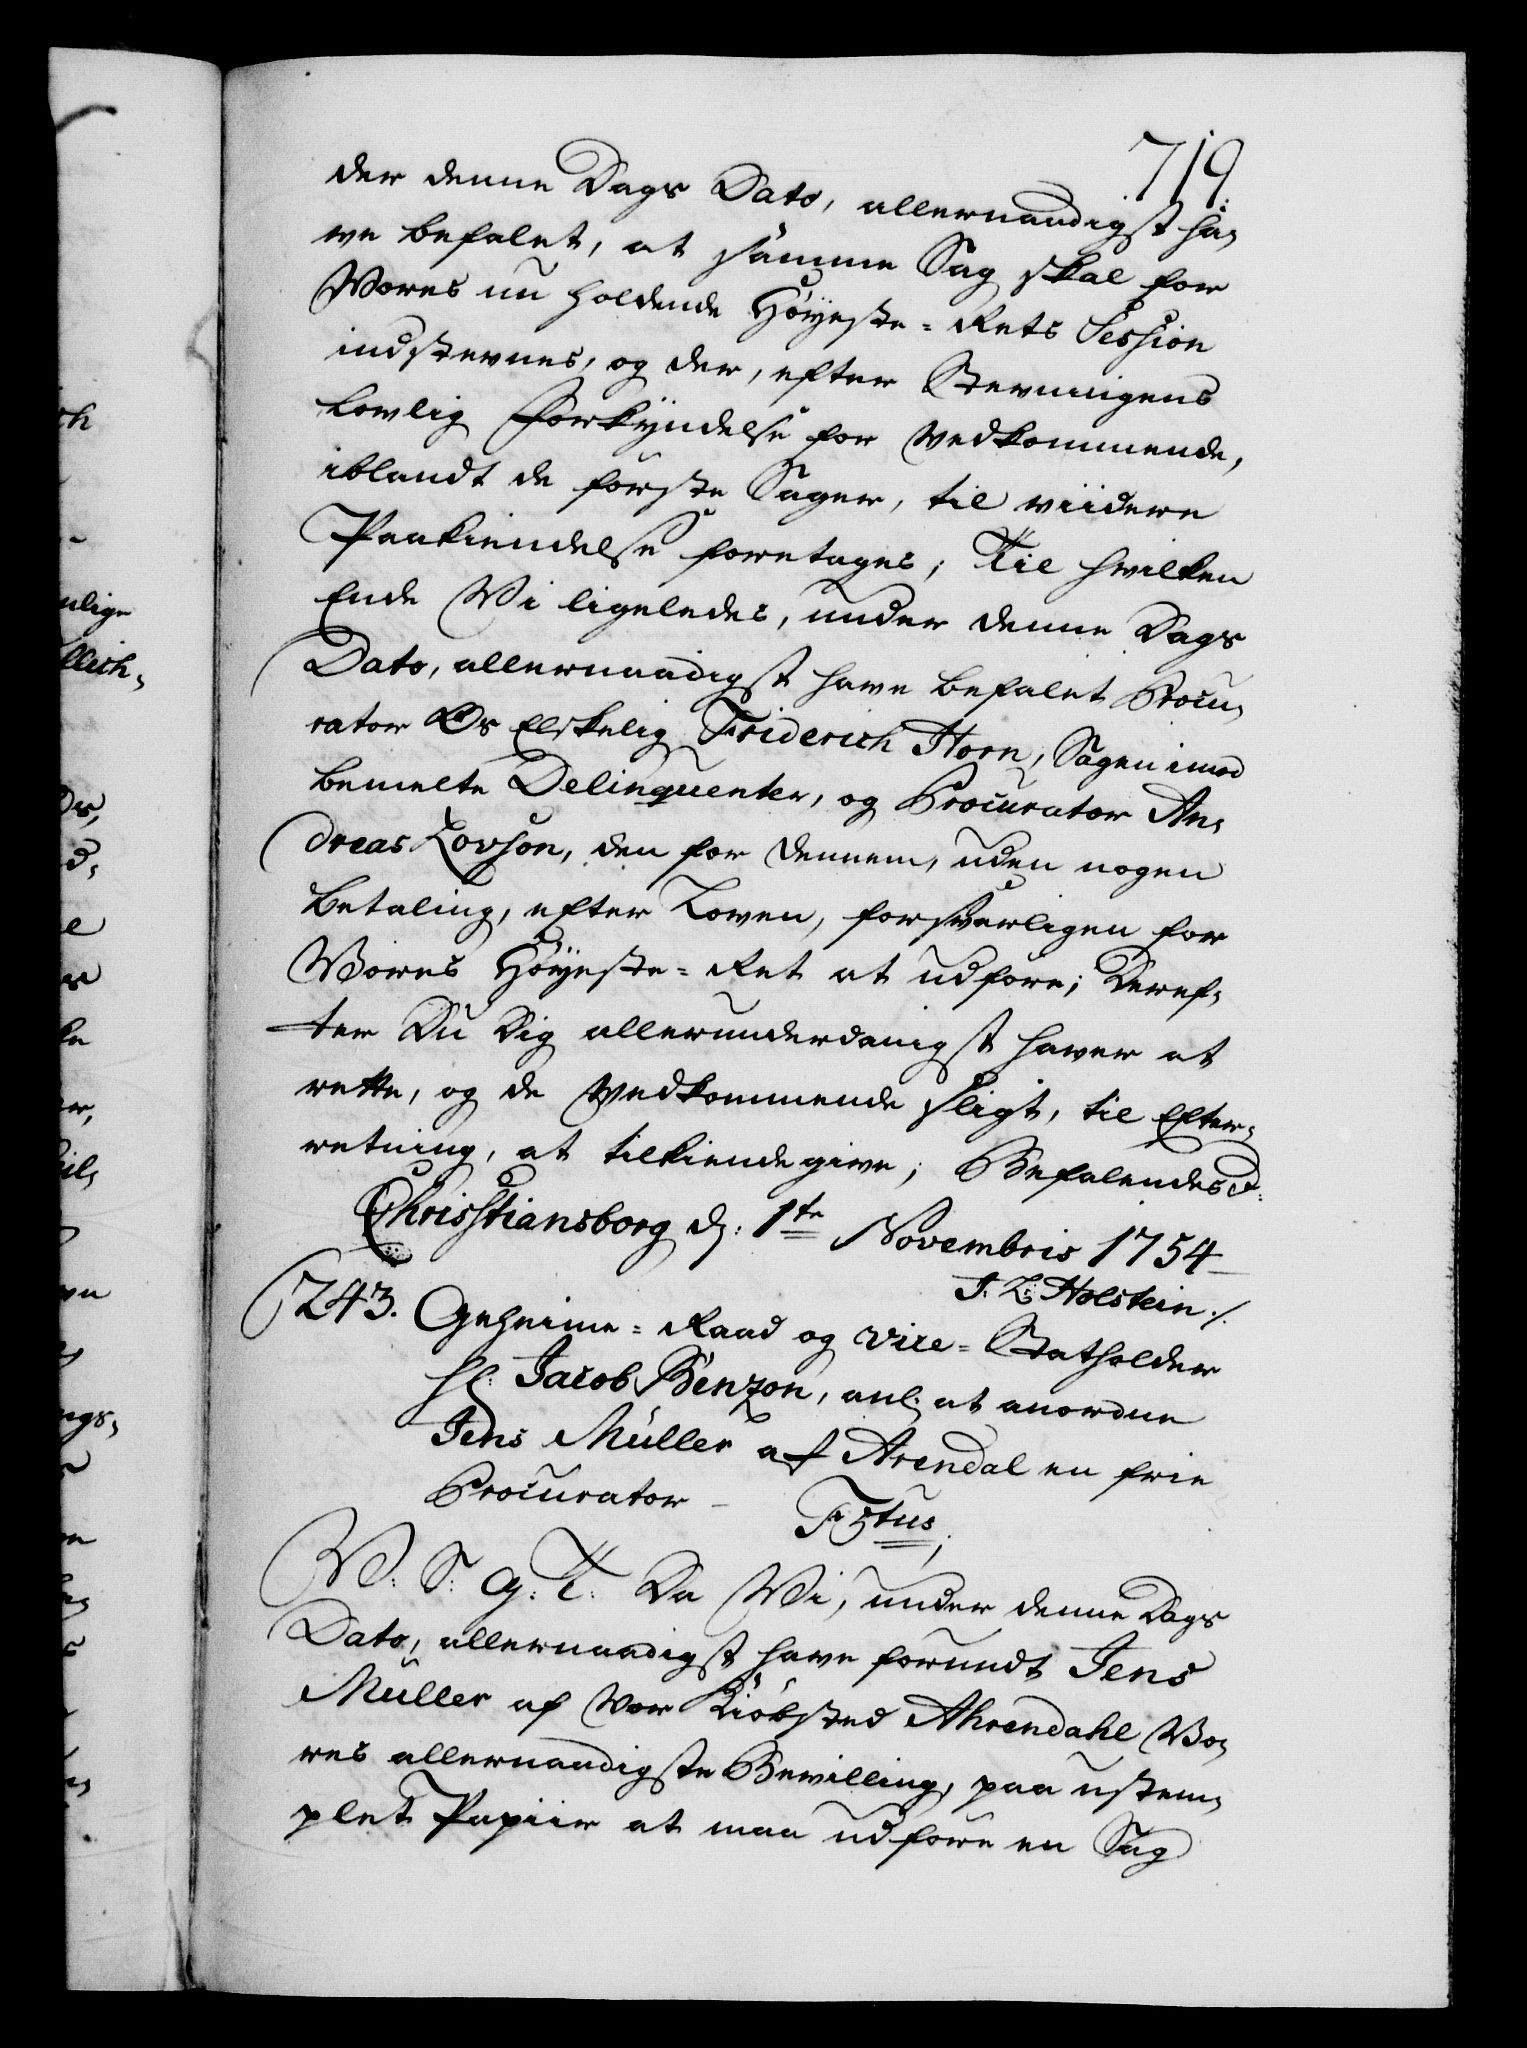 719.
der denne Dags Dato, allernaadigst ha,
ve befalet, at samme Sag skal for
Vores nu holdende Höyeste=Rets Session
indstevnes, og der, efter Stevningens
lovlig Forkyndelse for Vedkommende,
iblandt de første Sager, til viidere
Paakiendelse foretages; Til hvilken
Ende Vi ligeledes, under denne Dags
Dato, allernaadigst have befalet Procu,
rator Os Elskelig Friderich Horn, Sagen imod
bemelte Delinquenter, og Procurator An,
dreas Lovson, den for dennem, uden nogen
betaling, efter Loven, forsvarligen for
Vores Höyeste=Ret at udføre; Deref,
ter Du Dig allerunderdanigst haver at
rette, og de Vedkommende sligt, til Efter,
retning, at tilkiendegive; Befalendes
Christiansborg d: 1te Novembris 1754
J. L: Holstein ./.
243. Geheime=Raad og Vice=Statholder
Hr: Jacob Benzon, anl: at anordne
Jens Müller af Arendal en frie
Procurator – F5tus,
V: S: G: T: Da Vi, under denne Dags
Dato, allernaadigst have forundt Jens
Müller af Vor Kiøbsted Ahrendahl Vo,
res allernaadigste Bevilling, paa ustem,
plet Papiir at maa udføre en Sag